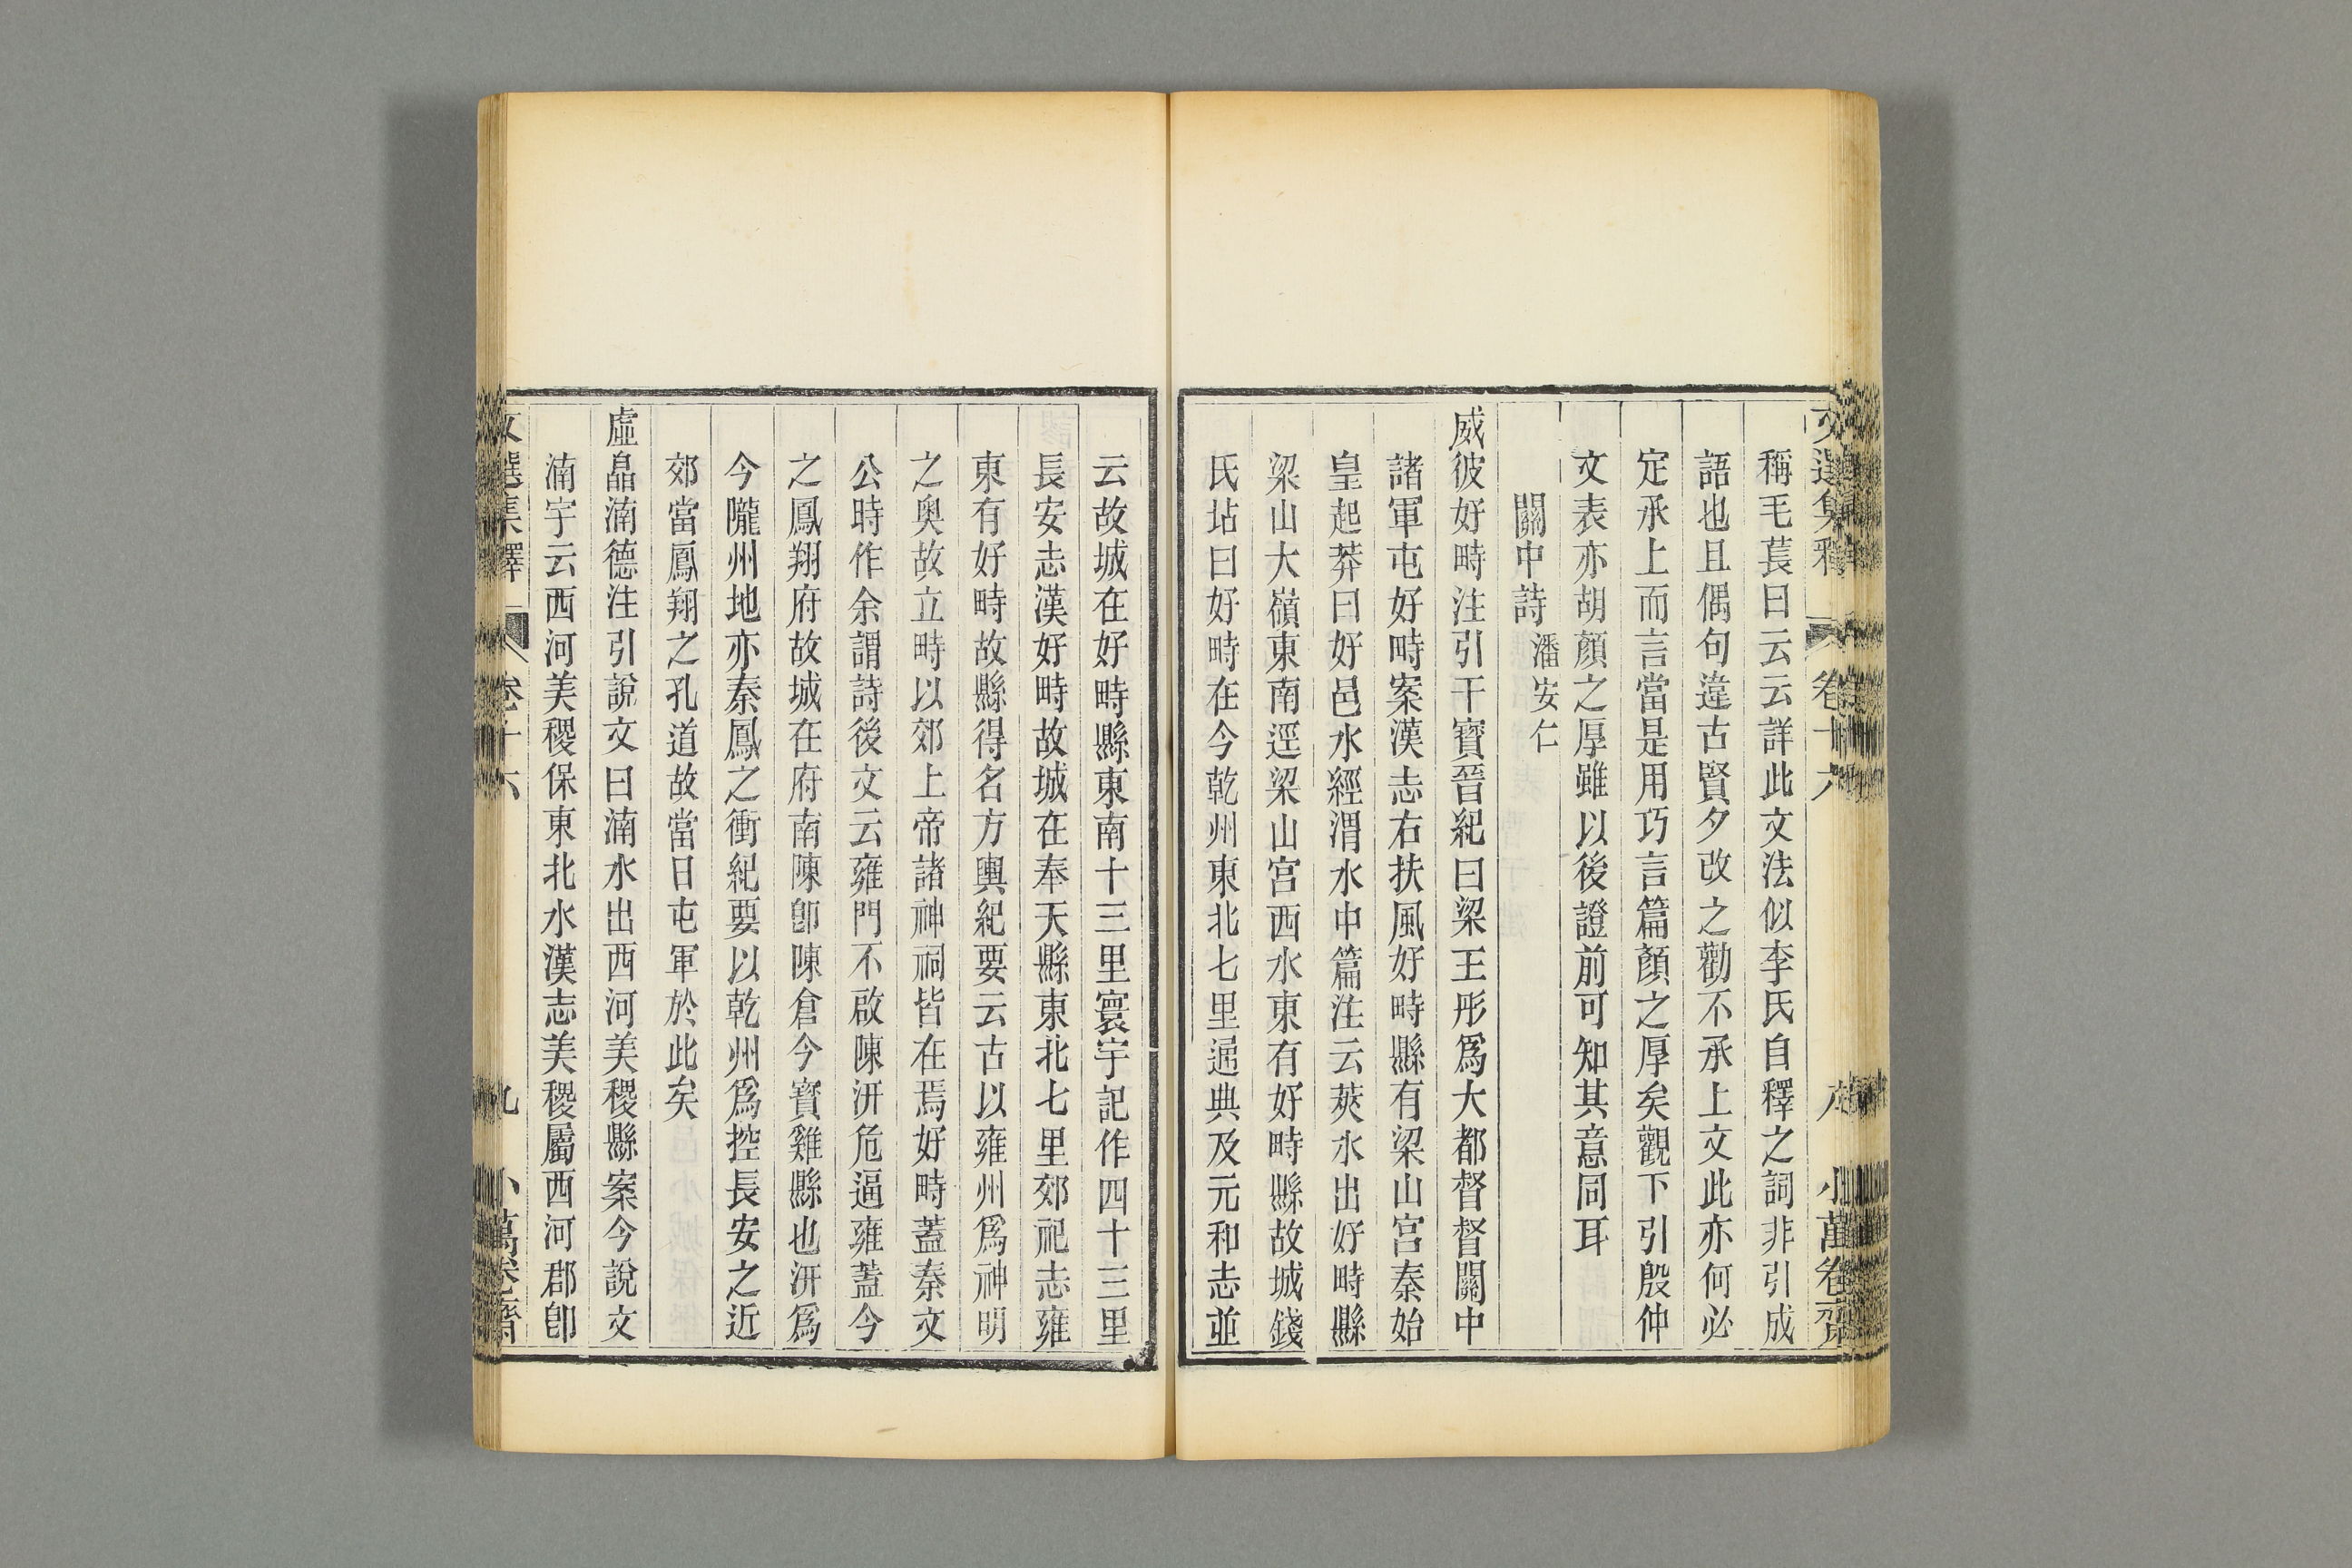 文選集釋 卷十六 八 小萬卷齋
稱毛萇曰云云詳此文法似李氏自釋之詞非引成
語也且偶句違古賢夕改之勸不承上文此亦何必
定承上而言當是用巧言篇顏之厚矣觀下引殷仲
文表亦胡顏之厚雖以後證前可知其意同耳
關中詩 潘安仁
威彼好畤注引干寶晉紀曰梁王彤爲大都督督關中
諸軍屯好畤案漢志右扶風好畤縣有梁山宮秦始
皇起莽曰好邑水經渭水中篇注云莢水出好畤縣
梁山大嶺東南逕梁山宮西水東有好畤縣故城錢
氏坫曰好畤在今乾州東北七里通典及元和志並
云故城在好畤縣東南十三里寰宇記作四十三里
長安志漢好畤故城在奉天縣東北七里郊祀志雍
東有好畤故縣得名方輿紀要云古以雍州爲神明
之奧故立畤以郊上帝諸神祠皆在焉好畤蓋秦文
公時作余謂詩後文云雍門不啟陳汧危逼雍蓋今
之鳳翔府故城在府南陳卽陳倉今寶雞縣也汧爲
今隴州地亦秦鳳之衝紀要以乾州爲控長安之近
郊當鳳翔之孔道故當日屯軍於此矣
虛皛湳德注引說文曰湳水出西河美稷縣案今說文
湳字云西河美稷保東北水漢志美稷屬西河郡卽
文選集釋 卷十六 九 小萬卷齋